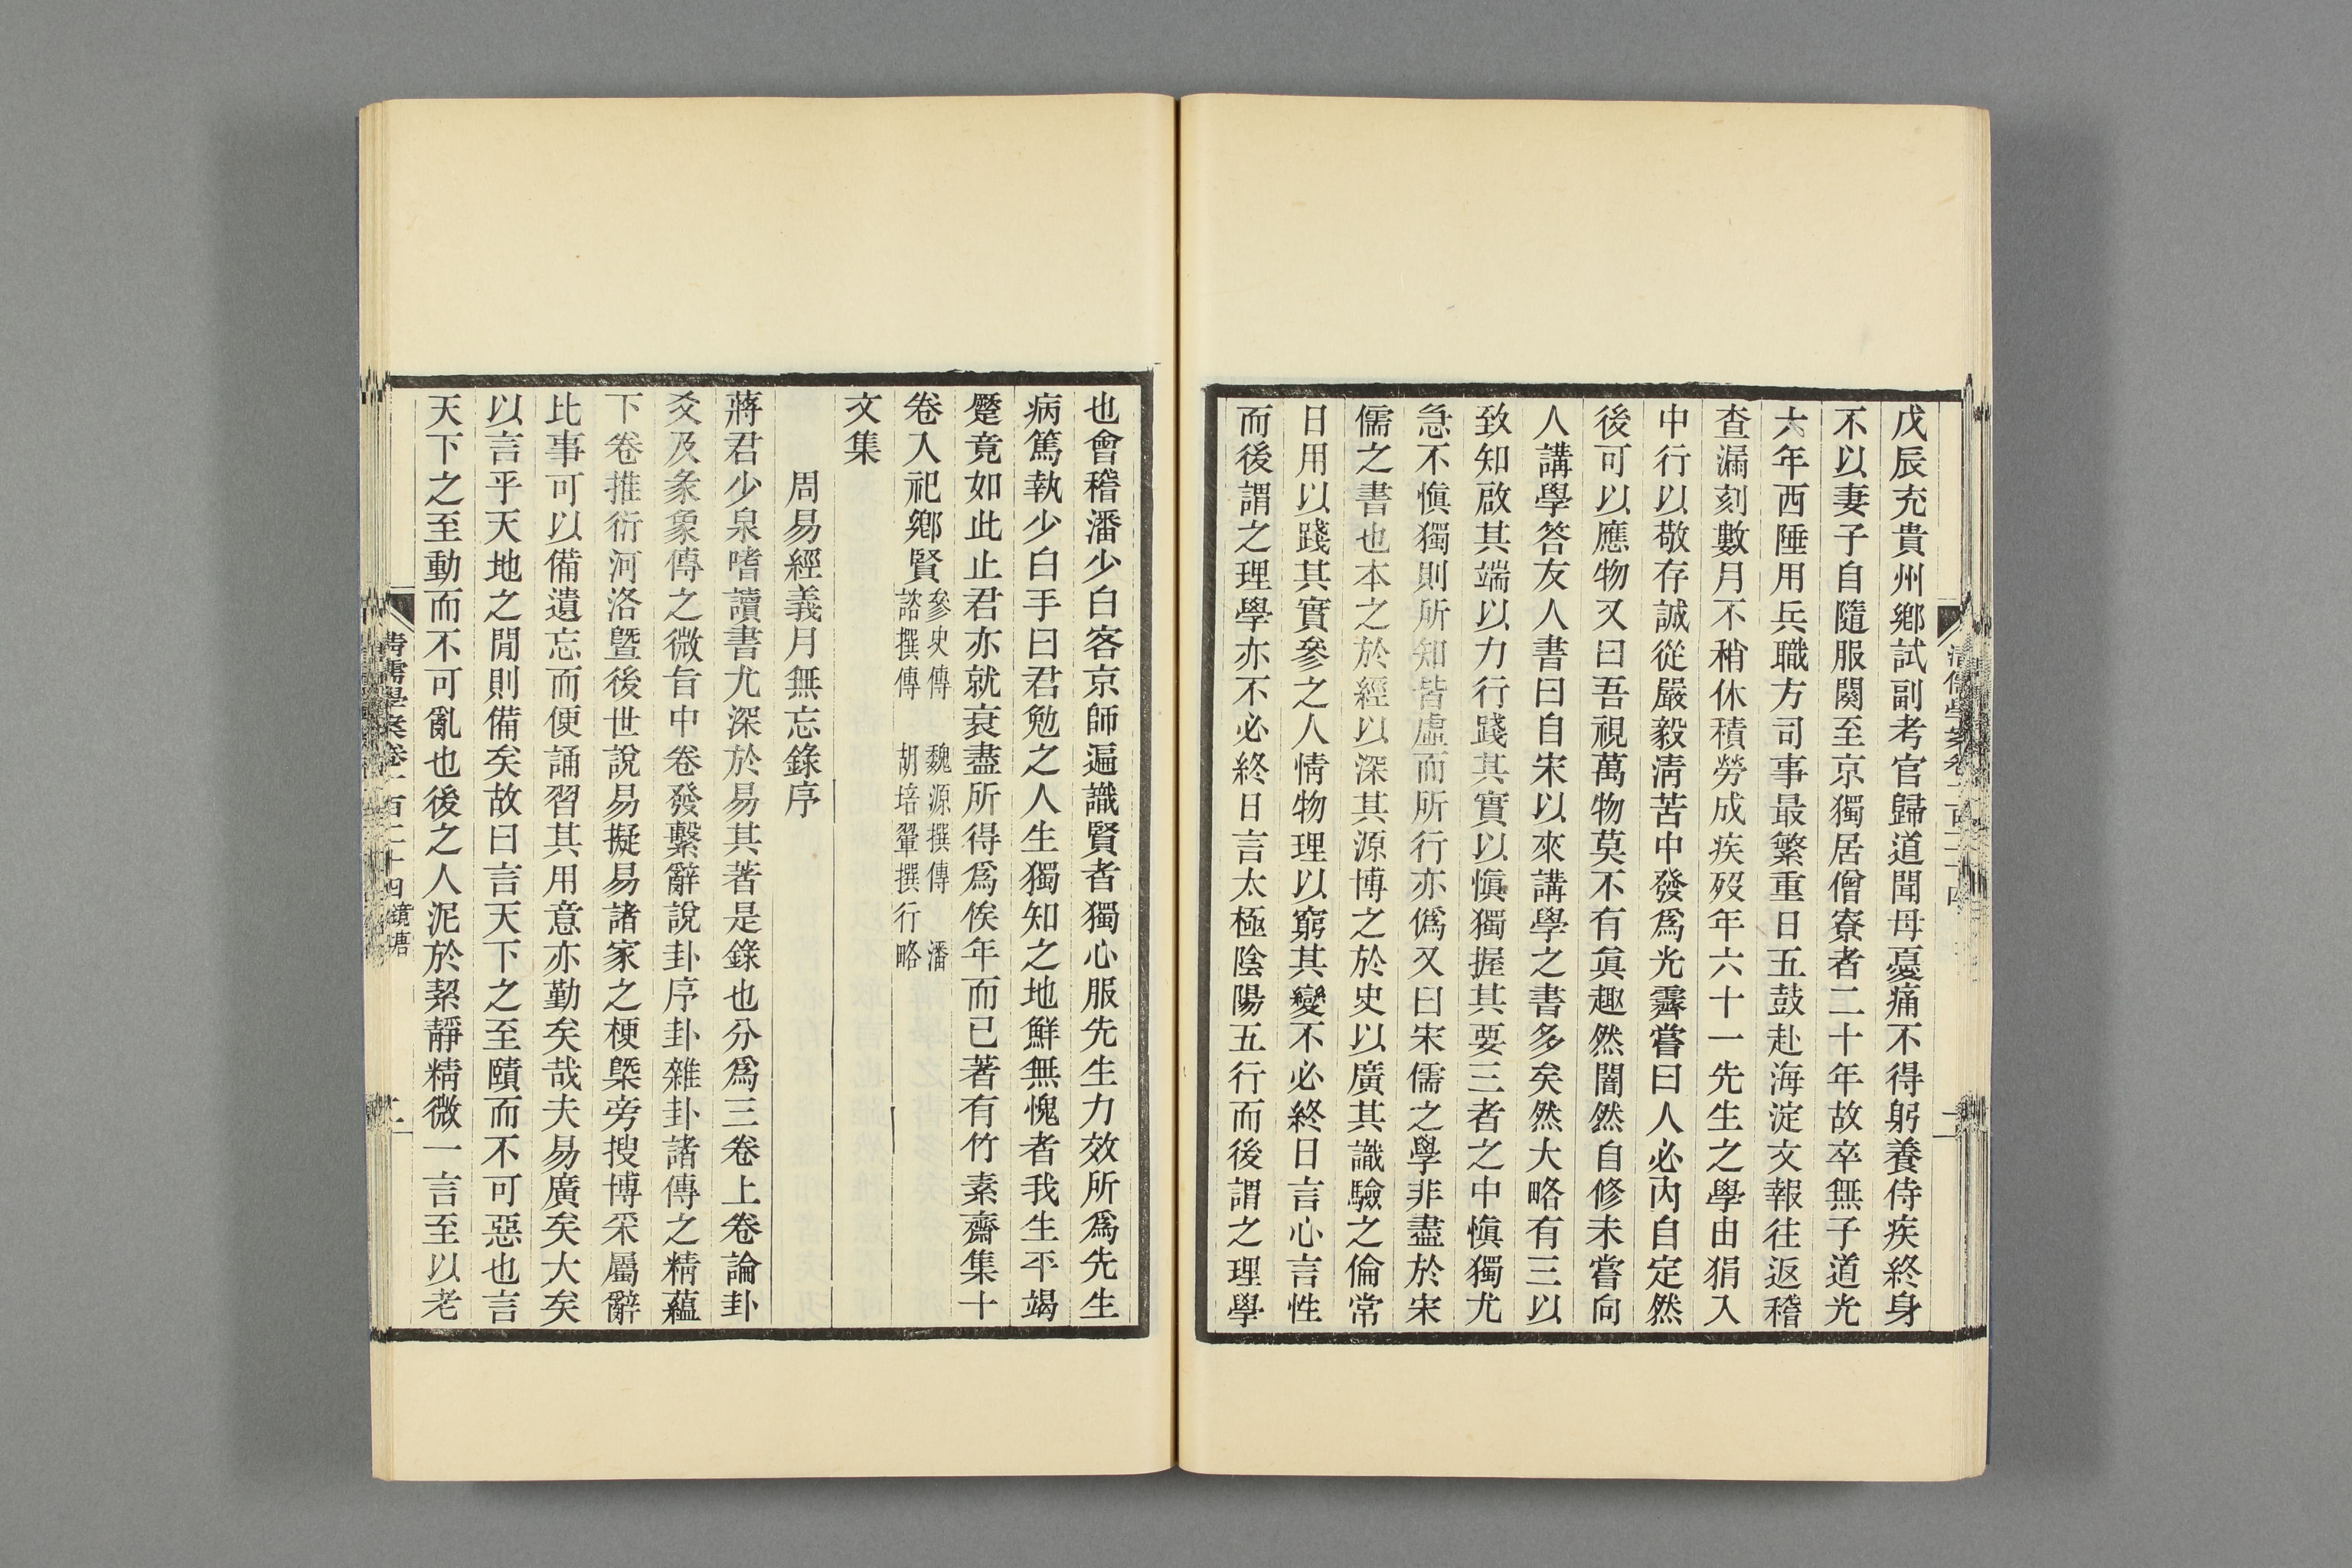 戊辰充貴州鄉試副考官歸道聞母憂痛不得躬養侍疾終身
不以妻子自隨服闋至京獨居僧寮者二十年故卒無子道光
六年西陲用兵職方司事最繁重日五鼓赴海淀文報往返稽
查漏刻數月不稍休積勞成疾歿年六十一先生之學由狷入
中行以敬存誠從嚴毅淸苦中發爲光霽嘗曰人必內自定然
後可以應物又曰吾視萬物莫不有眞趣然闇然自修未嘗向
人講學答友人書曰自宋以來講學之書多矣然大略有三以
致知啟其端以力行踐其實以愼獨握其要三者之中愼獨尤
急不愼獨則所知皆虛而所行亦僞又曰宋儒之學非盡於宋
儒之書也本之於經以深其源博之於史以廣其識驗之倫常
日用以踐其實參之人情物理以窮其變不必終日言心言性
而後謂之理學亦不必終日言太極陰陽五行而後謂之理學
也會稽潘少白客京師遍識賢者獨心服先生力效所爲先生
病篤執少白手曰君勉之人生獨知之地鮮無愧者我生平竭
蹙竟如此止君亦就衰盡所得爲俟年而已著有竹素齋集十
卷入祀鄉賢參史傳 魏源撰傳 潘
諮撰傳 胡培翬撰行略
文集
周易經義月無忘錄序
蔣君少泉嗜讀書尤深於易其著是錄也分爲三卷上卷論卦
爻及彖象傳之微旨中卷發繫辭說卦序卦雜卦諸傳之精蘊
下卷推衍河洛曁後世說易擬易諸家之梗槩旁搜博采屬辭
比事可以備遺忘而便誦習其用意亦勤矣哉夫易廣矣大矣
以言乎天地之閒則備矣故曰言天下之至賾而不可惡也言
天下之至動而不可亂也後之人泥於絜靜精微一言至以老
淸儒學案卷一百二十四 鏡塘